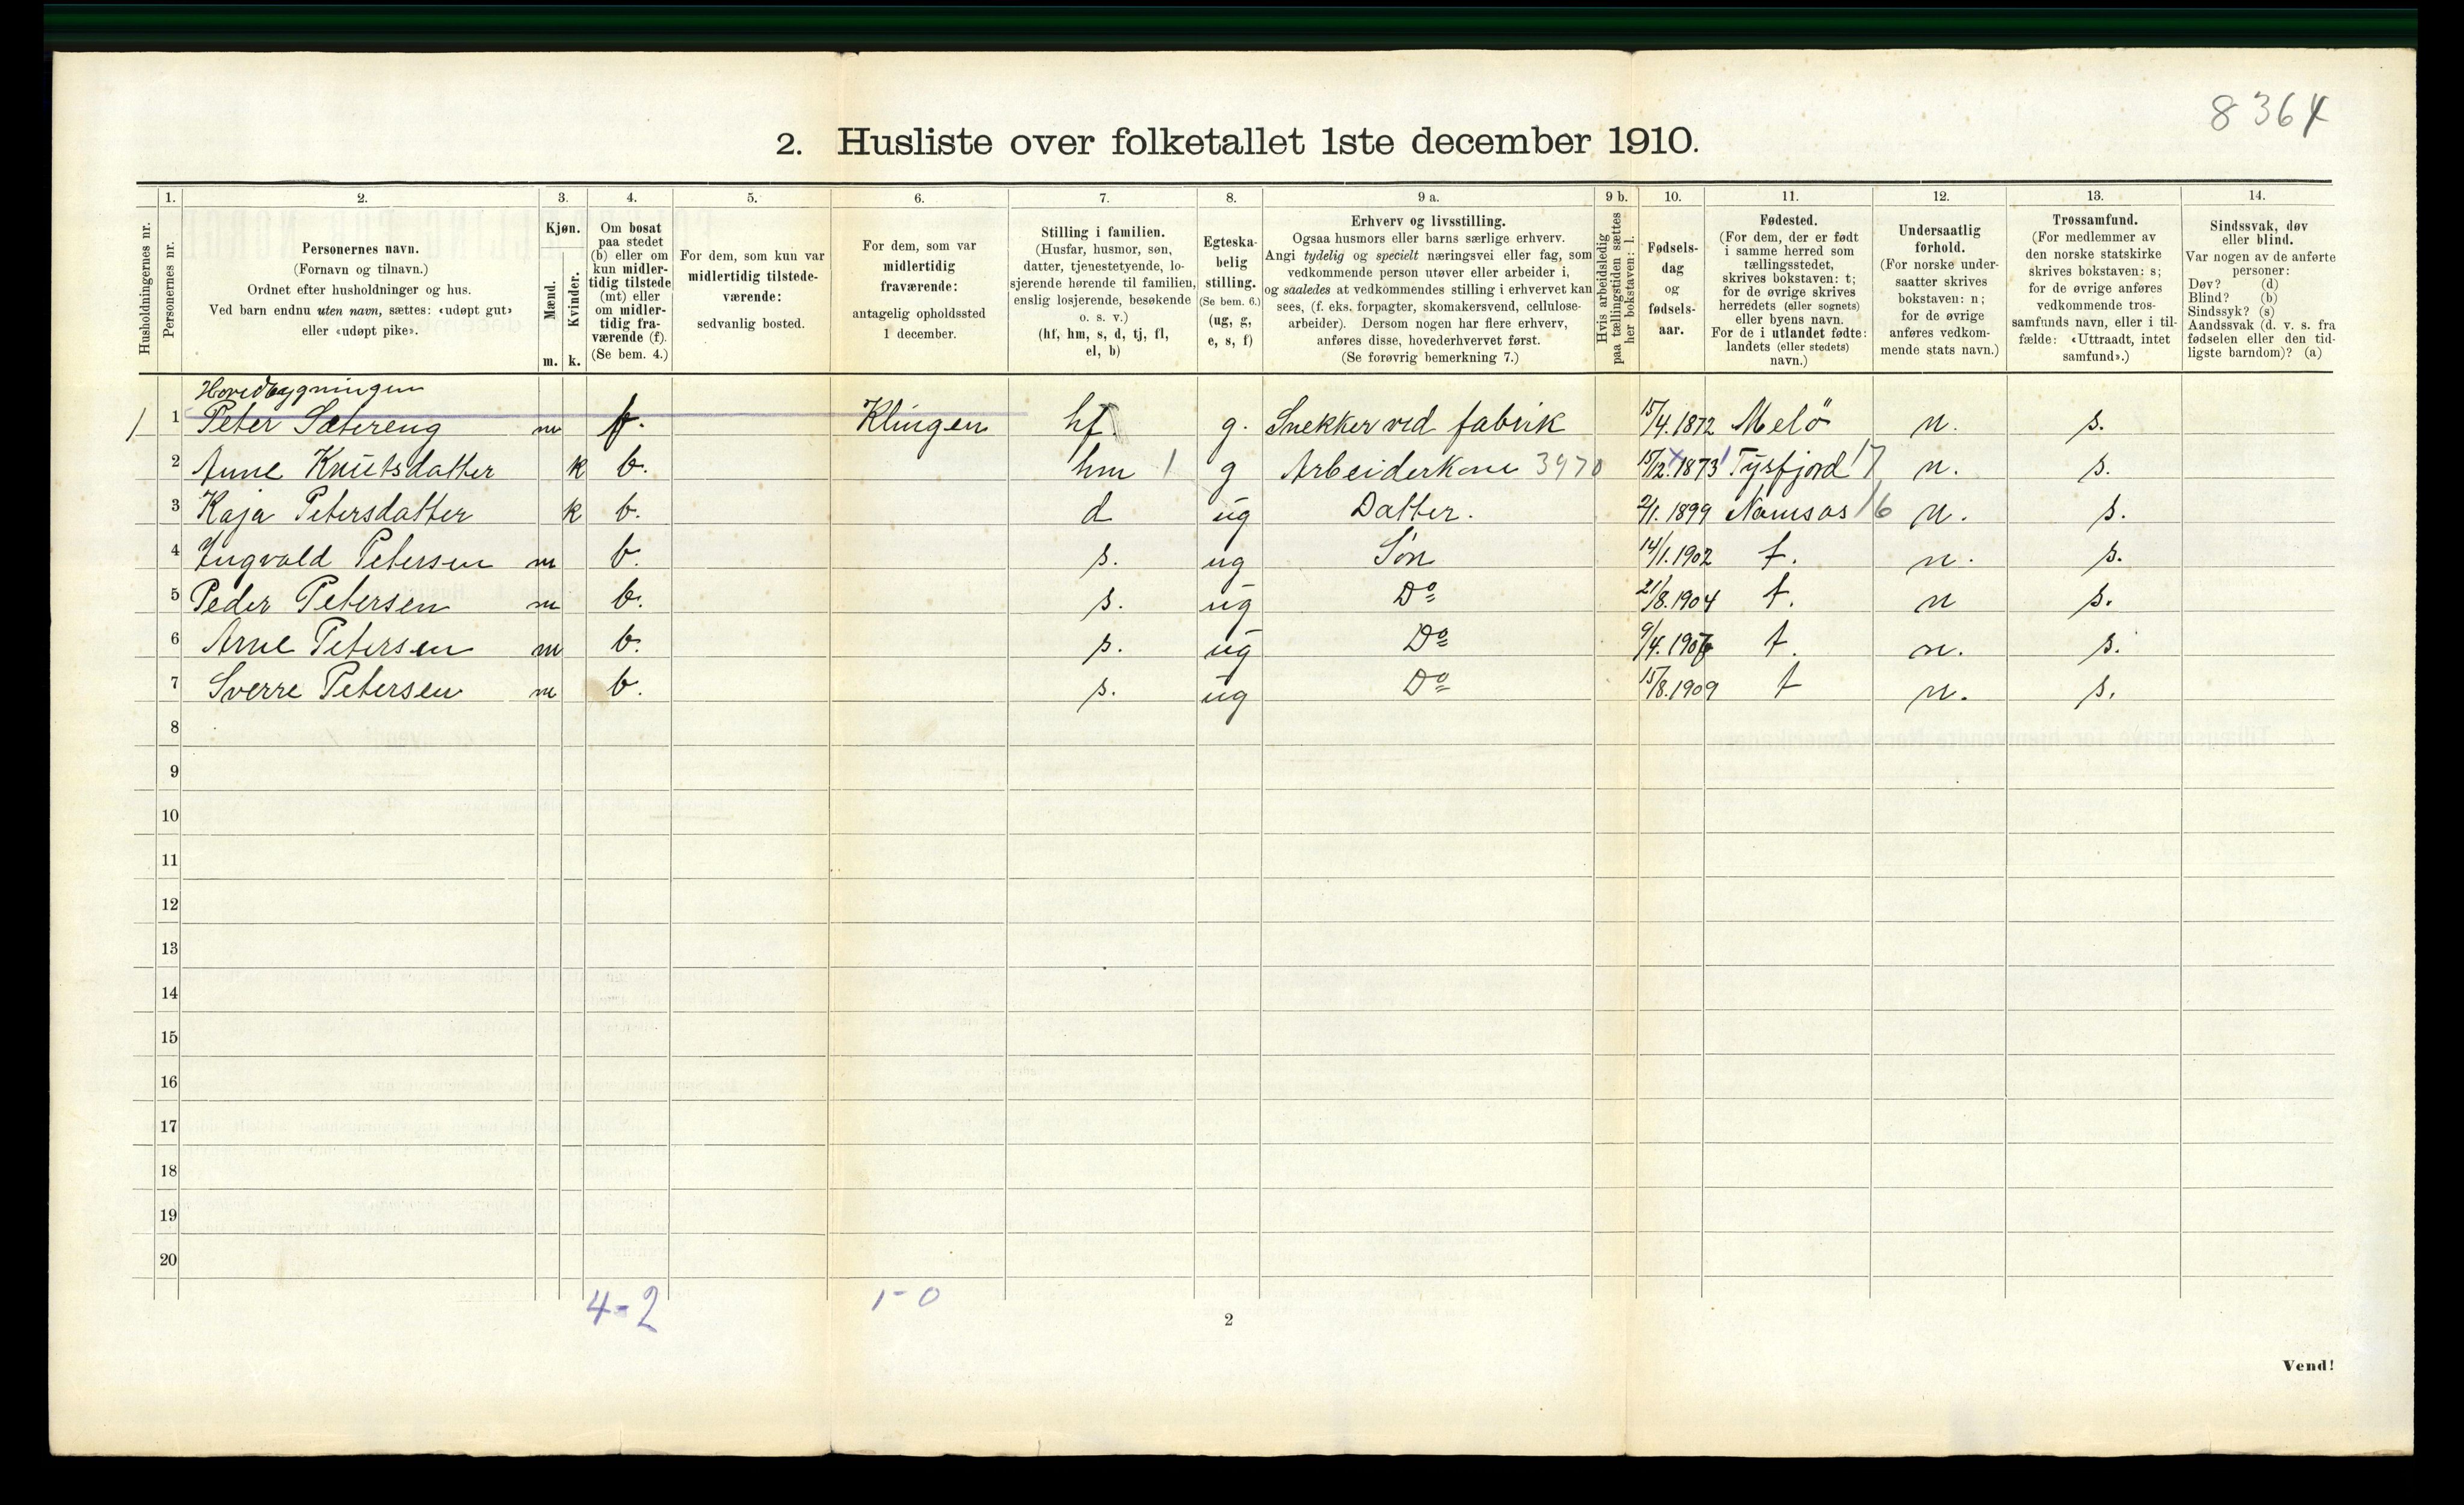 8364
2. Husliste over folketallet 1ste december 1910.
1. 2. 3. 4. 5. 6. 7. 8. 9 a. 9 b. 10. 11. 12. 13. 14.
Husholdningernes nr.
Personernes nr.
Personernes navn.
(Fornavn og tilnavn.)
Ordnet efter husholdninger og hus.
Ved barn endnu uten navn, sættes: «udøpt gut»
eller «udøpt pike».
Kjøn.
Mænd.
Kvinder.
m. k.
Om bosat
paa stedet
(b) eller om
kun midler-
tidig tilstede
(mt) eller
om midler-
tidig fra-
værende (f).
(Se bem. 4.)
For dem, som kun var
midlertidig tilstede-
værende:
sedvanlig bosted.
For dem, som var
midlertidig
fraværende:
antagelig opholdssted
1 december.
Stilling i familien.
(Husfar, husmor, søn,
datter, tjenestetyende, lo-
sjerende hørende til familien,
enslig losjerende, besøkende
o. s. v.)
(hf, hm, s, d, tj, fl,
el, b)
Egteska-
belig
stilling.
(Se bem. 6.)
(ug, g,
e, s, f)
Erhverv og livsstilling.
Ogsaa husmors eller barns særlige erhverv.
Angi tydelig og specielt næringsvei eller fag, som
vedkommende person utøver eller arbeider i,
og saaledes at vedkommendes stilling i erhvervet kan
sees, (f. eks. forpagter, skomakersvend, cellulose-
arbeider). Dersom nogen har flere erhverv,
anføres disse, hovederhvervet først.
(Se forøvrig bemerkning 7.)
Hvis arbeidsledig
paa tællingstiden sættes
her bokstaven: l.
Fødsels-
dag
og
fødsels-
aar.
Fødested.
(For dem, der er født
i samme herred som
tællingsstedet,
skrives bokstaven: t;
for de øvrige skrives
herredets (eller sognets)
eller byens navn.
For de i utlandet fødte:
landets (eller stedets)
navn.)
Undersaatlig
forhold.
(For norske under-
saatter skrives
bokstaven: n;
for de øvrige
anføres vedkom-
mende stats navn.)
Trossamfund.
(For medlemmer av
den norske statskirke
skrives bokstaven: s;
for de øvrige anføres
vedkommende tros-
samfunds navn, eller i til-
fælde: «Uttraadt, intet
samfund».)
Sindssvak, døv
eller blind.
Var nogen av de anførte
personer:
Døv? (d)
Blind? (b)
Sindssyk? (s)
Aandssvak (d. v. s. fra
fødselen eller den tid-
ligste barndom)? (a)
Hovedbygningen
1 1 Peter Sætereng m f. Klingen hf g. Snekker ved fabrik 15/4.1872 Melö n. s.
2 Anne Knutsdatter k b. hm 1 g Arbeiderkone 3970 15/12.1873 Tysfjord 17 n. s.
3 Kaja Petersdatter k b. d ug Datter. 2/1.1899 Namsos 16 n. s.
4 Ingvald Petersen m b. s. ug Sön 14/1.1902 t. n. s.
5 Peder Petersen m b. s. ug Do 21/8.1904 t. n s.
6 Arne Petersen m b. s. ug Do 9/4.1906 t. n. s.
7 Sverre Petersen m b. s. ug Do 15/8.1909 t n. s.
8
9
10
11
12
13
14
15
16
17
18
19
20
4-2 1-0
2
Vend!